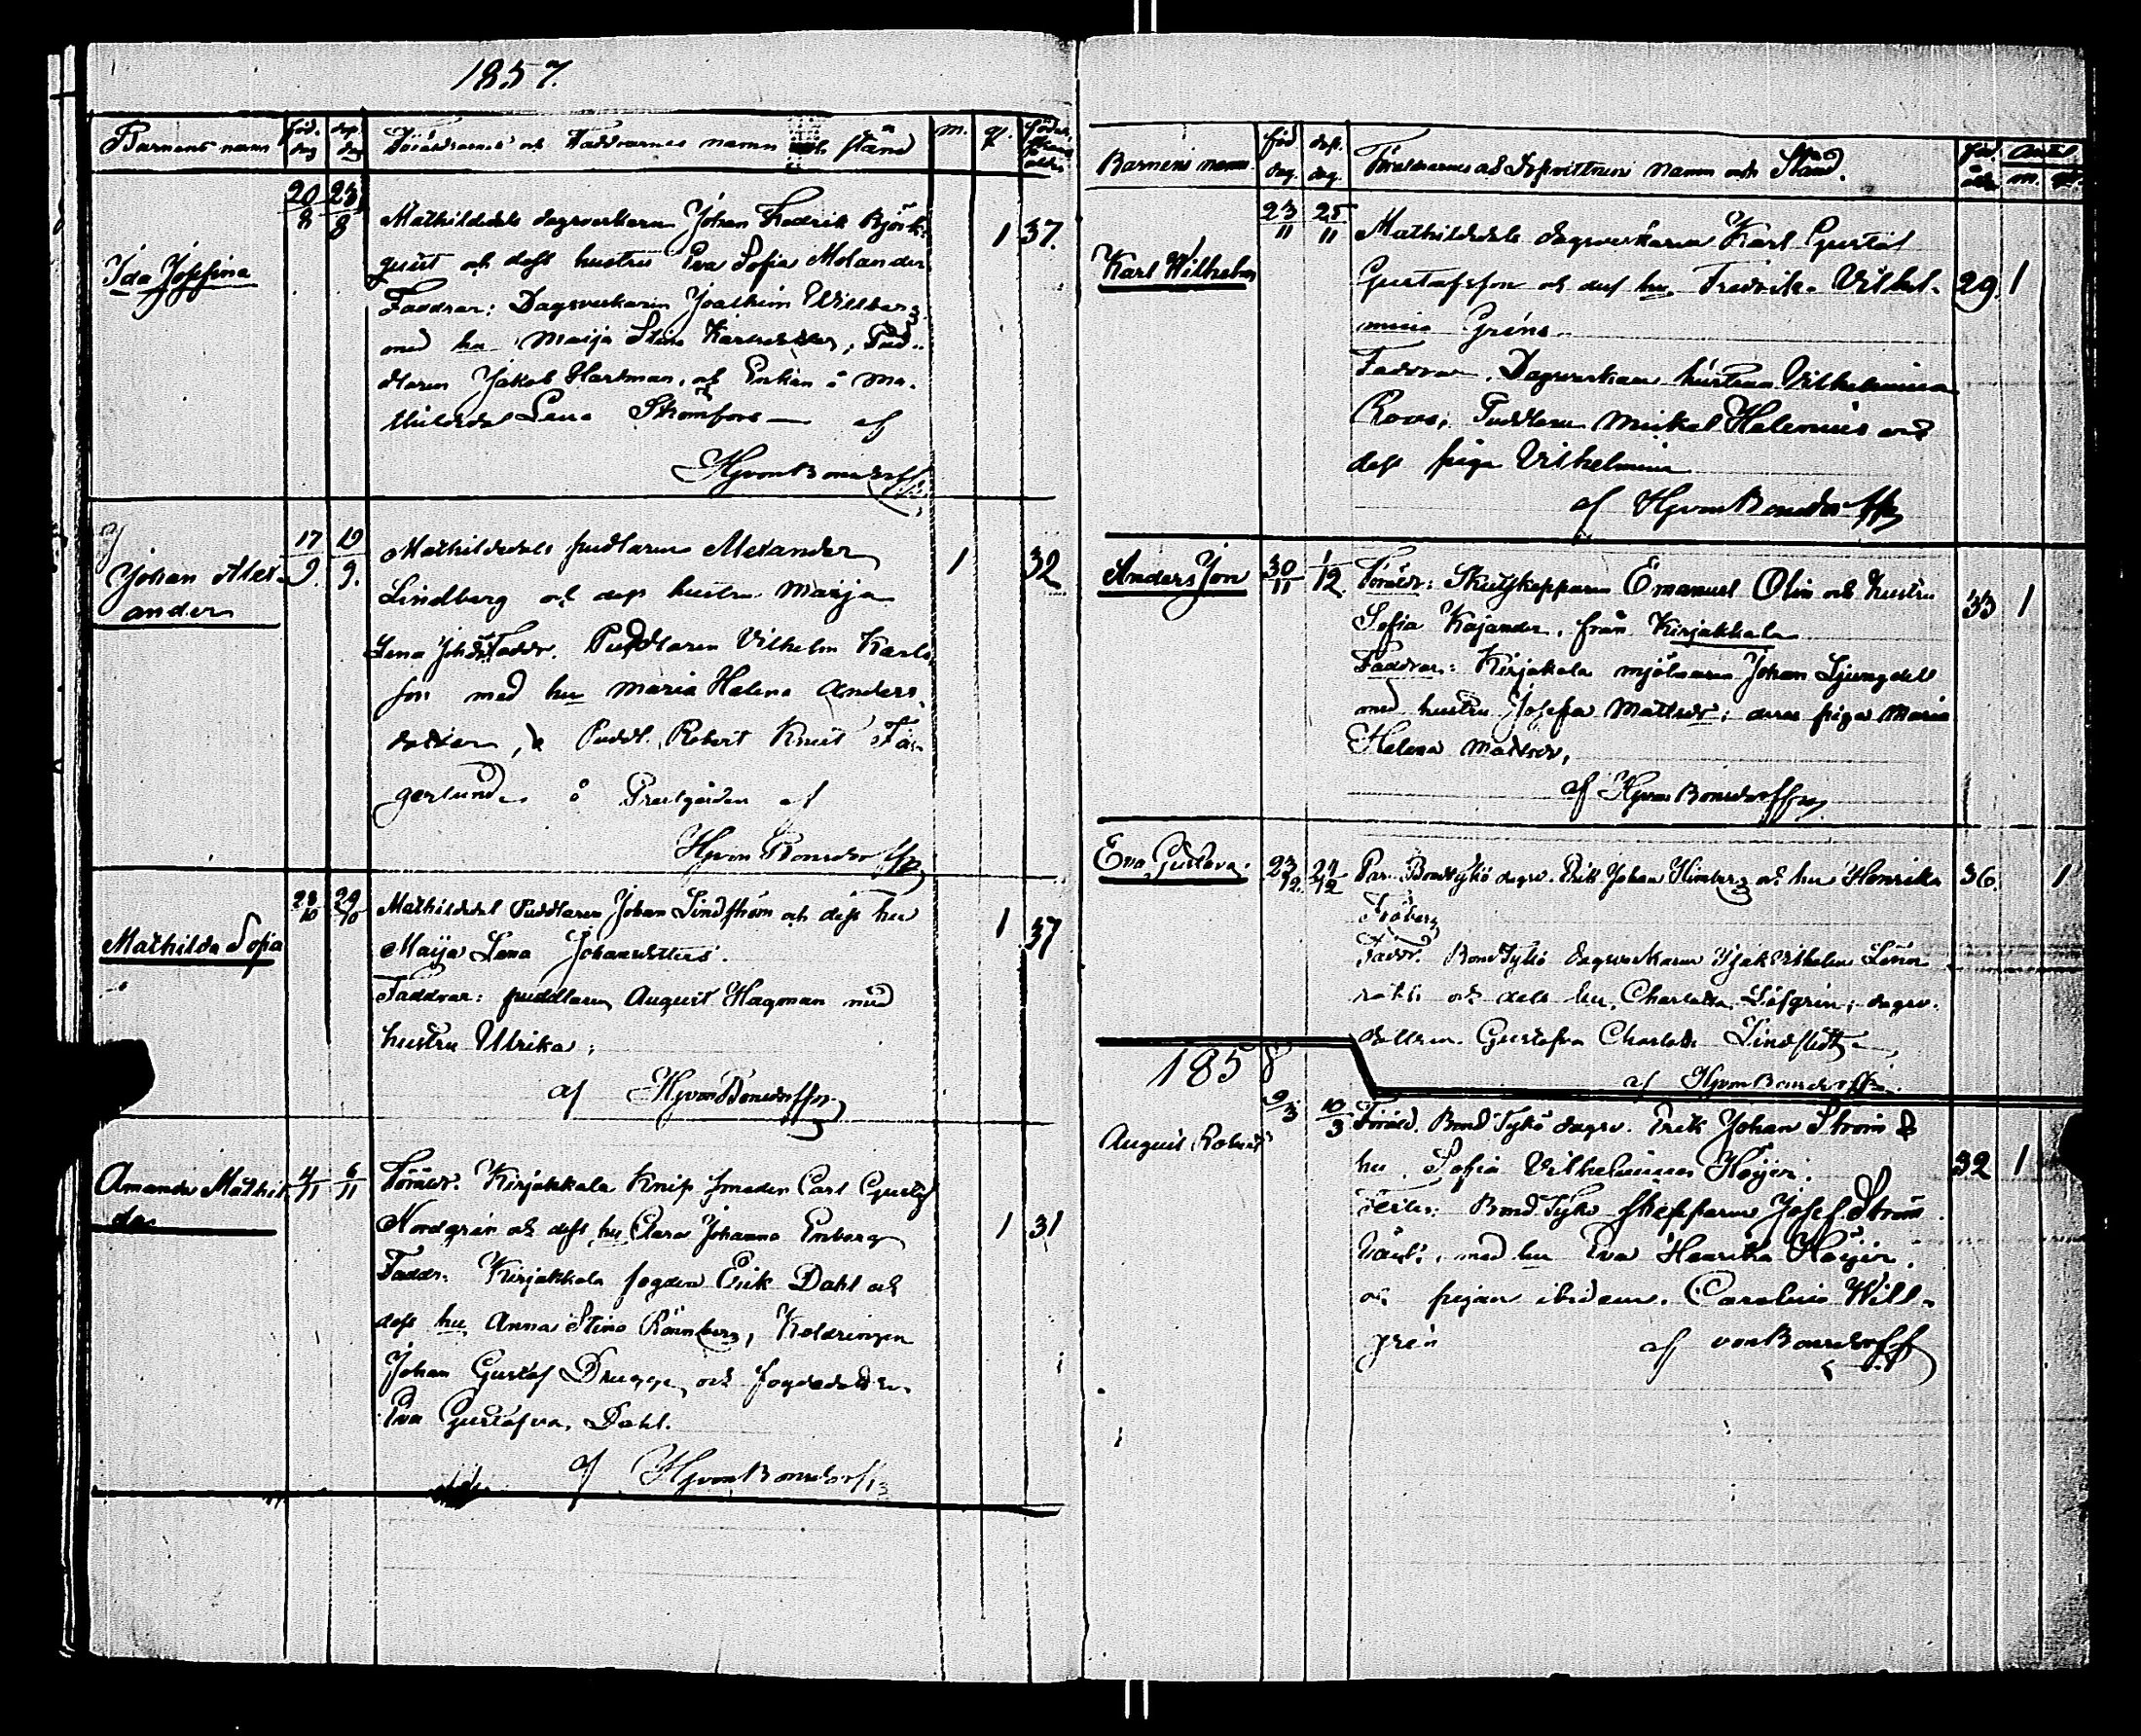 1857.
Barnens namn född dag döp. dag Föräldrarnes och Faddrarnes namn och stånd m. q.
Ida Josefina 20/8 23/8 Mathildedals dagsverkaren Johan Fredrik Björk-
quist och dess hustru Eva Sofia Melander 1 37.
Faddrar: Dagsverkaren Joachim Willberg
med hu Maija Stina, Pud-
dlaren Jakob Hartman, och Enkan å Ma-
thildedal Lena Strömfors — af
HJvonBonsdorff
Johan Alex- 17/9. 19/9. Mathildedals pudlaren Alexander 1 32
ander Lindberg och dess hustru Maija
Lena Johdr. Faddr. Puddlaren Vilhelm Karls-
son med hu Maria Helena Anders-
dotter, & Puddl. Robert Knut Fa-
gerlund å Prestgården af
HJvonBonsdorff
Mathilda Sofia 28/10 29/10 Mathildedal Puddlaren Johan Lindström och dess hu 1 37
Maija Lena Johansdotter.
Faddrar: puddlaren August Hagman med
hustru Ulrika;
af HJvonBonsdorff
Amanda Mathil- 4/11 6/11 Föräldr. Kirjakkala Knip smeden Carl Gustaf
da Nordgren och dess hu Clara Johanna Enberg 1 31
Faddr. Kirjakkala fogden Erik Dahl och
dess hu Anna Stina Rönnberg, Koldrengen
Johan Gustaf Drugge och fogdedottren
Eva Gustafva Dahl.
af HJvonBonsdorff
Barnens namn föd dag. döp. dag. Föräldrarnes och Dopvittnens namn och Stånd. föd. ålder Antal m. q.
Karl Wilhelm 23/11 25/11 Mathildedals dagsverkaren Karl Gustaf
Gustafsson och dess hu. Fredrika Vilhel- 29. 1
mina Grene
Faddrar. Dagsverkare hustrun Vilhelmina
Roos; Puddlaren Mickel Helenius och
dess piga Vilhelmina
af HJvonBonsdorff
Anders Jon 30/11 1/12. Föräldr: Skutskepparen Emanuel Olin och hustru 33 1
Sofia Kajander, från Kirjakkala
Faddrar: Kirjakala mjölnaren Johan Ljungdell
med hustru Josefa Mattsdr; deras piga Maria
Helena Mattsdr,
af HJvonBonsdorff
Eva Gustava. 23/12. 24/12 Par. Bondtykö dagsv. Erik Johan Himberg och hu Henrika 36. 1
Fröberg
Faddr. BondTykö dagsverkaren Isak Vilhelm Lönn-
och dess hu. Charlotta Löfgren; dagsv.
dottren Gustafva Charlotta Lindstedt
af HJvonBonsdorff.
1858
August Robert 9/3 10/3 Föräld. Bond Tykö dagsv. Erik Johan Ström &
hu. Sofia Vilhelmina Höijer. 32 1
Testes: Bond Tykö skepparen Josef Ström
med hu Eva Henrika Höijer,
och pigan ibidem. Carolina Will-
gren af vonBonsdorff